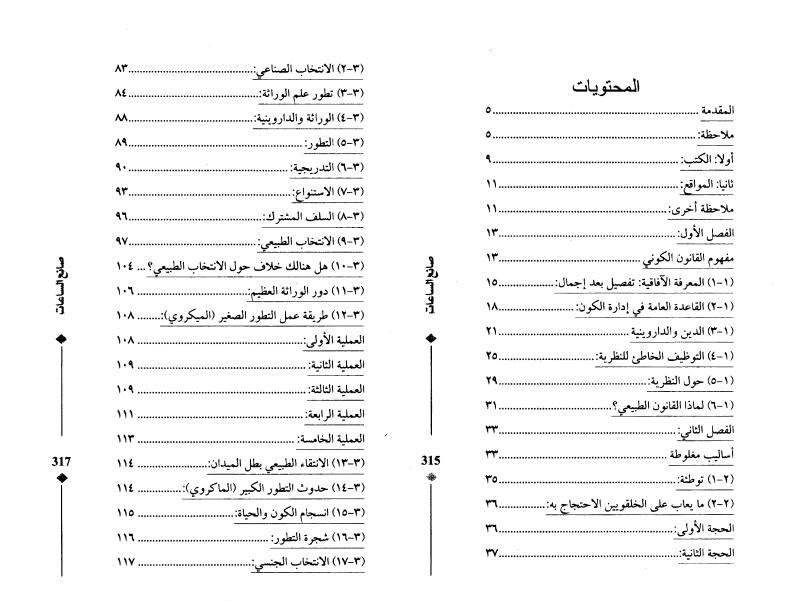 المحتويات
المقدمة ٥
ملاحظة: ٥
أولا: الكتب: ٩
ثانيا: المواقع: ١١
ملاحظة أخرى: ١١
الفصل الأول: ١٣
مفهوم القانون الكوني ١٣
(١-١) المعرفة الآفاقية: تفصيل بعد إجمال: ١٥
(١-٢) القاعدة العامة في إدارة الكون: ١٨
(١-٣) الدين والداروينية ٢١
(١-٤) التوظيف الخاطئ للنظرية: ٢٥
(١-٥) حول النظرية: ٢٩
(١-٦) لماذا القانون الطبيعي؟ ٣١
الفصل الثاني: ٣٣
أساليب مغلوطة ٣٣
(٢-١) توطئة: ٣٥
(٢-٢) ما يعاب على الخلقويين الاحتجاج به: ٣٦
الحجة الأولى: ٣٦
الحجة الثانية: ٣٧
صانع الساعات
315
(٣-٢) الانتخاب الصناعي: ٨٣
(٣-٣) تطور علم الوراثة: ٨٤
(٣-٤) الوراثة والداروينية: ٨٨
(٣-٥) التطور: ٨٩
(٣-٦) التدريجية: ٩٠
(٣-٧) الاستنواع: ٩٣
(٣-٨) السلف المشترك: ٩٦
(٣-٩) الانتخاب الطبيعي: ٩٧
(٣-١٠) هل هنالك خلاف حول الانتخاب الطبيعي؟ ... ١٠٤
(٣-١١) دور الوراثة العظيم: ١٠٦
(٣-١٢) طريقة عمل التطور الصغير (الميكروي): ١٠٨
العملية الأولى: ١٠٨
العملية الثانية: ١٠٩
العملية الثالثة: ١٠٩
العملية الرابعة: ١١١
العملية الخامسة: ١١٣
(٣-١٣) الانتقاء الطبيعي بطل الميدان: ١١٤
(٣-١٤) حدوث التطور الكبير (الماكروي): ١١٤
(٣-١٥) انسجام الكون والحياة: ١١٥
(٣-١٦) شجرة التطور: ١١٦
(٣-١٧) الانتخاب الجنسي: ١١٧
صانع الساعات
317